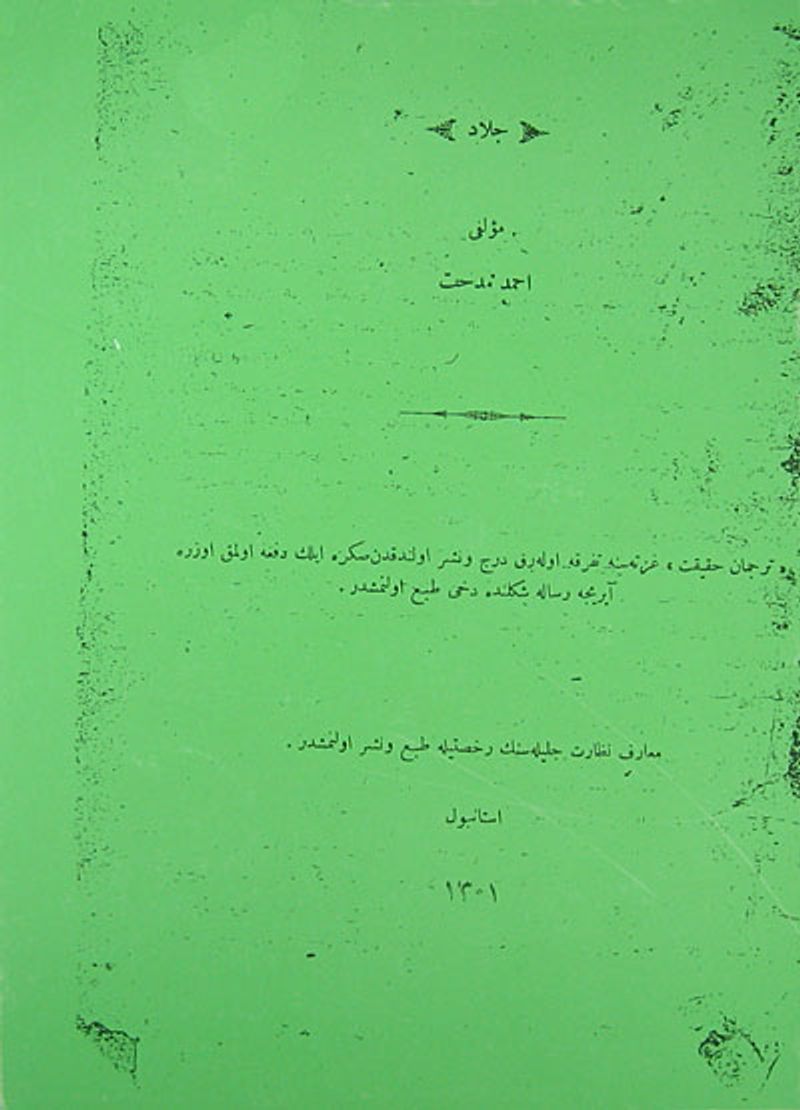 جلاد
مؤلفی
احمد مدحت
« ترجمان حقیقت » غزته‌سنه تفرقه اوله‌رق درج ونشر اولندقدن‌صكره ایلك دفعه اولمق اوزره
آیریجه رساله شكلنده دخی طبع اولنمشدر .
معارف نظارت جلیله‌سنك رخصتیله طبع ونشر اولنمشدر .
استانبول
١٣٠١